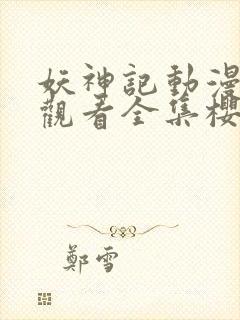 妖神記動漫
觀看全集櫻
鄭雪